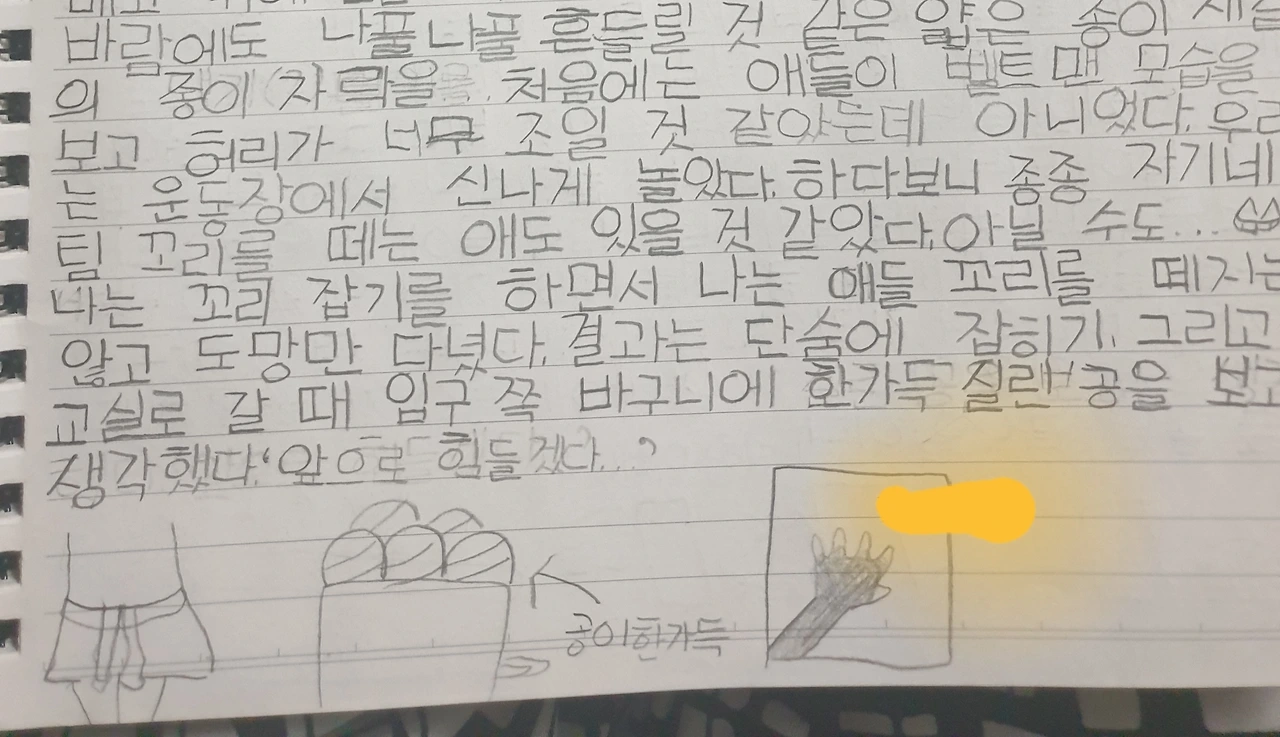 바람에도 나풀나풀 흔들릴 것 같은 얇은 종이
의 종이 자락을. 처음에는 애들이 벨트맨 모습을
보고 허리가 너무 조일 것 같았는데 아니었다. 우리
는 운동장에서 신나게 놀았다. 하다보니 종종 자기네
팀 꼬리를 떼는 애도 있을 것 같았다. 아닐 수도...
나는 꼬리 잡기를 하면서 나는 애들 꼬리를 떼지는
않고 도망만 다녔다. 결과는 단숨에 잡히기. 그리고
교실로 갈 때 입구 쪽 바구니에 한가득 질린 공을 보고
생각했다.'앞으로 힘들겠다...'
공이한가득